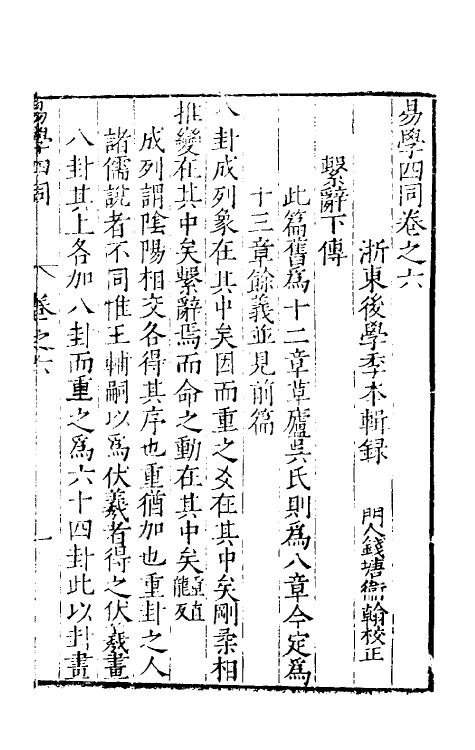 易學四同卷之六
浙東後學季本輯録　門人錢塘衞翰校正
繫辭下傳
此篇舊爲十二章草廬吳氏則爲八章今定爲
十三章餘義並見前篇
八卦成列象在其中矣因而重之爻在其中矣剛柔相
推變在其中矣繫辭焉而命之動在其中矣
成列謂陰陽相交各得其序也重猶加也重卦之人
諸儒說者不同惟王輔嗣以爲伏羲者得之伏羲畫
八卦其上各加八卦而重之爲六十四卦此以卦畫
易學四同　卷之六　一